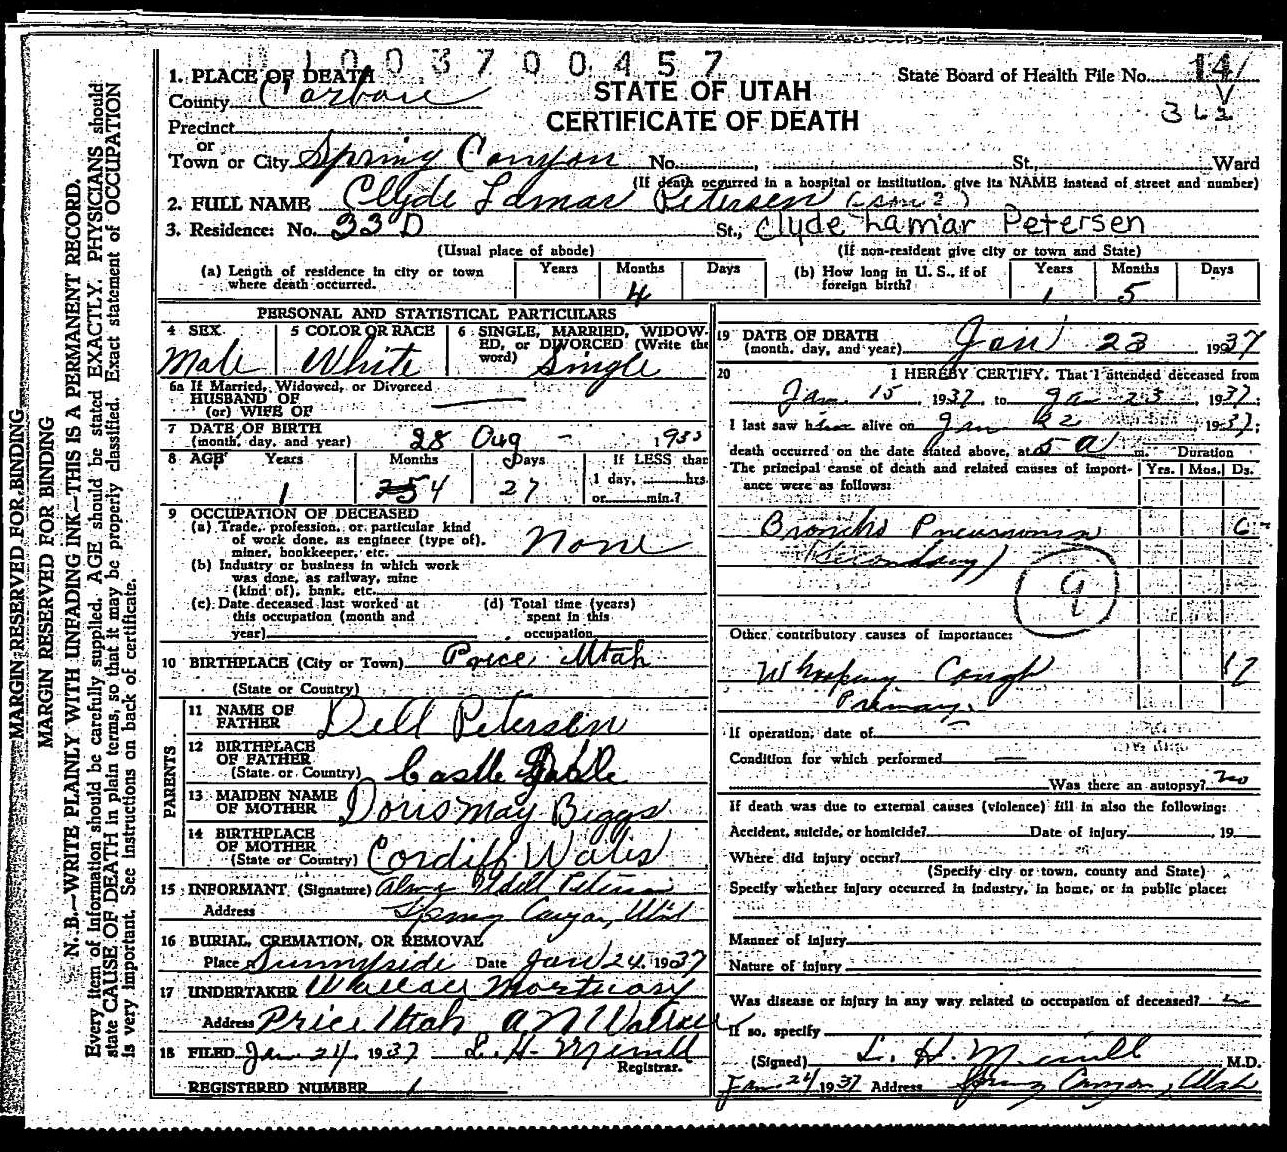 MARGIN RESERVED FOR BINDING
MARGIN RESERVED FOR BINDING
N. B.—WRITE PLAINLY WITH UNFADING INK—THIS IS A PERMANENT RECORD.
Every item of information should be carefully supplied. AGE should be stated EXACTLY. PHYSICIANS should
state CAUSE OF DEATH in plain terms, so that it may be properly classified. Exact statement of OCCUPATION
is very important. See instructions on back of certificate.
0 1 0 0 3 7 0 0 4 5 7
1. PLACE OF DEATH
County Carbon
Precinct
or
Town or City Spring Canyon No. , St. Ward
STATE OF UTAH
CERTIFICATE OF DEATH
State Board of Health File No. 14
(If death occurred in a hospital or institution, give its NAME instead of street and number)
2. FULL NAME Clyde Lamar Petersen
3. Residence: No. 33 D St., Clyde Lamar Petersen
(Usual place of abode) (If non-resident give city or town and State)
(a) Length of residence in city or town where death occurred. Years Months 4 Days
(b) How long in U. S., if of foreign birth? Years 1 Months 5 Days
PERSONAL AND STATISTICAL PARTICULARS
4 SEX Male
5 COLOR OR RACE White
6 SINGLE, MARRIED, WIDOWED, OR DIVORCED (Write the word) Single
6a If Married, Widowed, or Divorced
HUSBAND OF
(or) WIFE OF
7 DATE OF BIRTH
(month, day, and year) 28 Aug - 193
8 AGE Years 1 Months 4 Days 27 If LESS than
1 day, hrs.
or min.?
9 OCCUPATION OF DECEASED
(a) Trade, profession, or particular kind
of work done, as engineer (type of),
miner, bookkeeper, etc. None
(b) Industry or business in which work
was done, as railway, mine
(kind of), bank, etc.
(c) Date deceased last worked at
this occupation (month and
year)
(d) Total time (years)
spent in this
occupation
10 BIRTHPLACE (City or Town) Price, Utah
(State or Country)
PARENTS
11 NAME OF
FATHER Dell Petersen
12 BIRTHPLACE
OF FATHER
(State or Country) Castle Gate
13 MAIDEN NAME
OF MOTHER Doris May Biggs
14 BIRTHPLACE
OF MOTHER
(State or Country) Cordiff Wales
15 INFORMANT (Signature) Alma Udell Petersen
Address Spring Canyon, Utah
16 BURIAL, CREMATION, OR REMOVAL
Place Sunnyside Date Jan 24, 1937
17 UNDERTAKER Wallace Mortuary
Address Price Utah A N Wallace
18 FILED Jan 24, 1937 L. H. Merrill
Registrar.
REGISTERED NUMBER 1
19 DATE OF DEATH
(month, day, and year) Jan 23 1937
20 I HEREBY CERTIFY, That I attended deceased from
Jan 15, 1937, to Jan 23, 1937;
I last saw him alive on Jan 22 1937;
death occurred on the date stated above, at 5 a m. Duration
The principal cause of death and related causes of importance were as follows: Yrs. Mos. Ds.
Broncho Pneumonia 6
Secondary)
9
Other contributory causes of importance:
Whooping Cough 17
Primary.
If operation, date of
Condition for which performed
Was there an autopsy? no
If death was due to external causes (violence) fill in also the following:
Accident, suicide, or homicide? Date of injury , 19
Where did injury occur?
(Specify city or town, county and State)
Specify whether injury occurred in industry, in home, or in public place:
Manner of injury
Nature of injury
Was disease or injury in any way related to occupation of deceased? no
If so, specify
(Signed) L. H. Merrill M.D.
Jan 24 1937 Address Spring Canyon, Utah